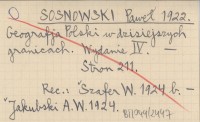 SOSNOWSKI Paweł 1922.
Geografja Polski w dzisiejszych
granicach. Wydanie IV. —
Stron 211.
Rec.: "Szafer W. 1924 b. —
"Jakubski A.W. 1924.